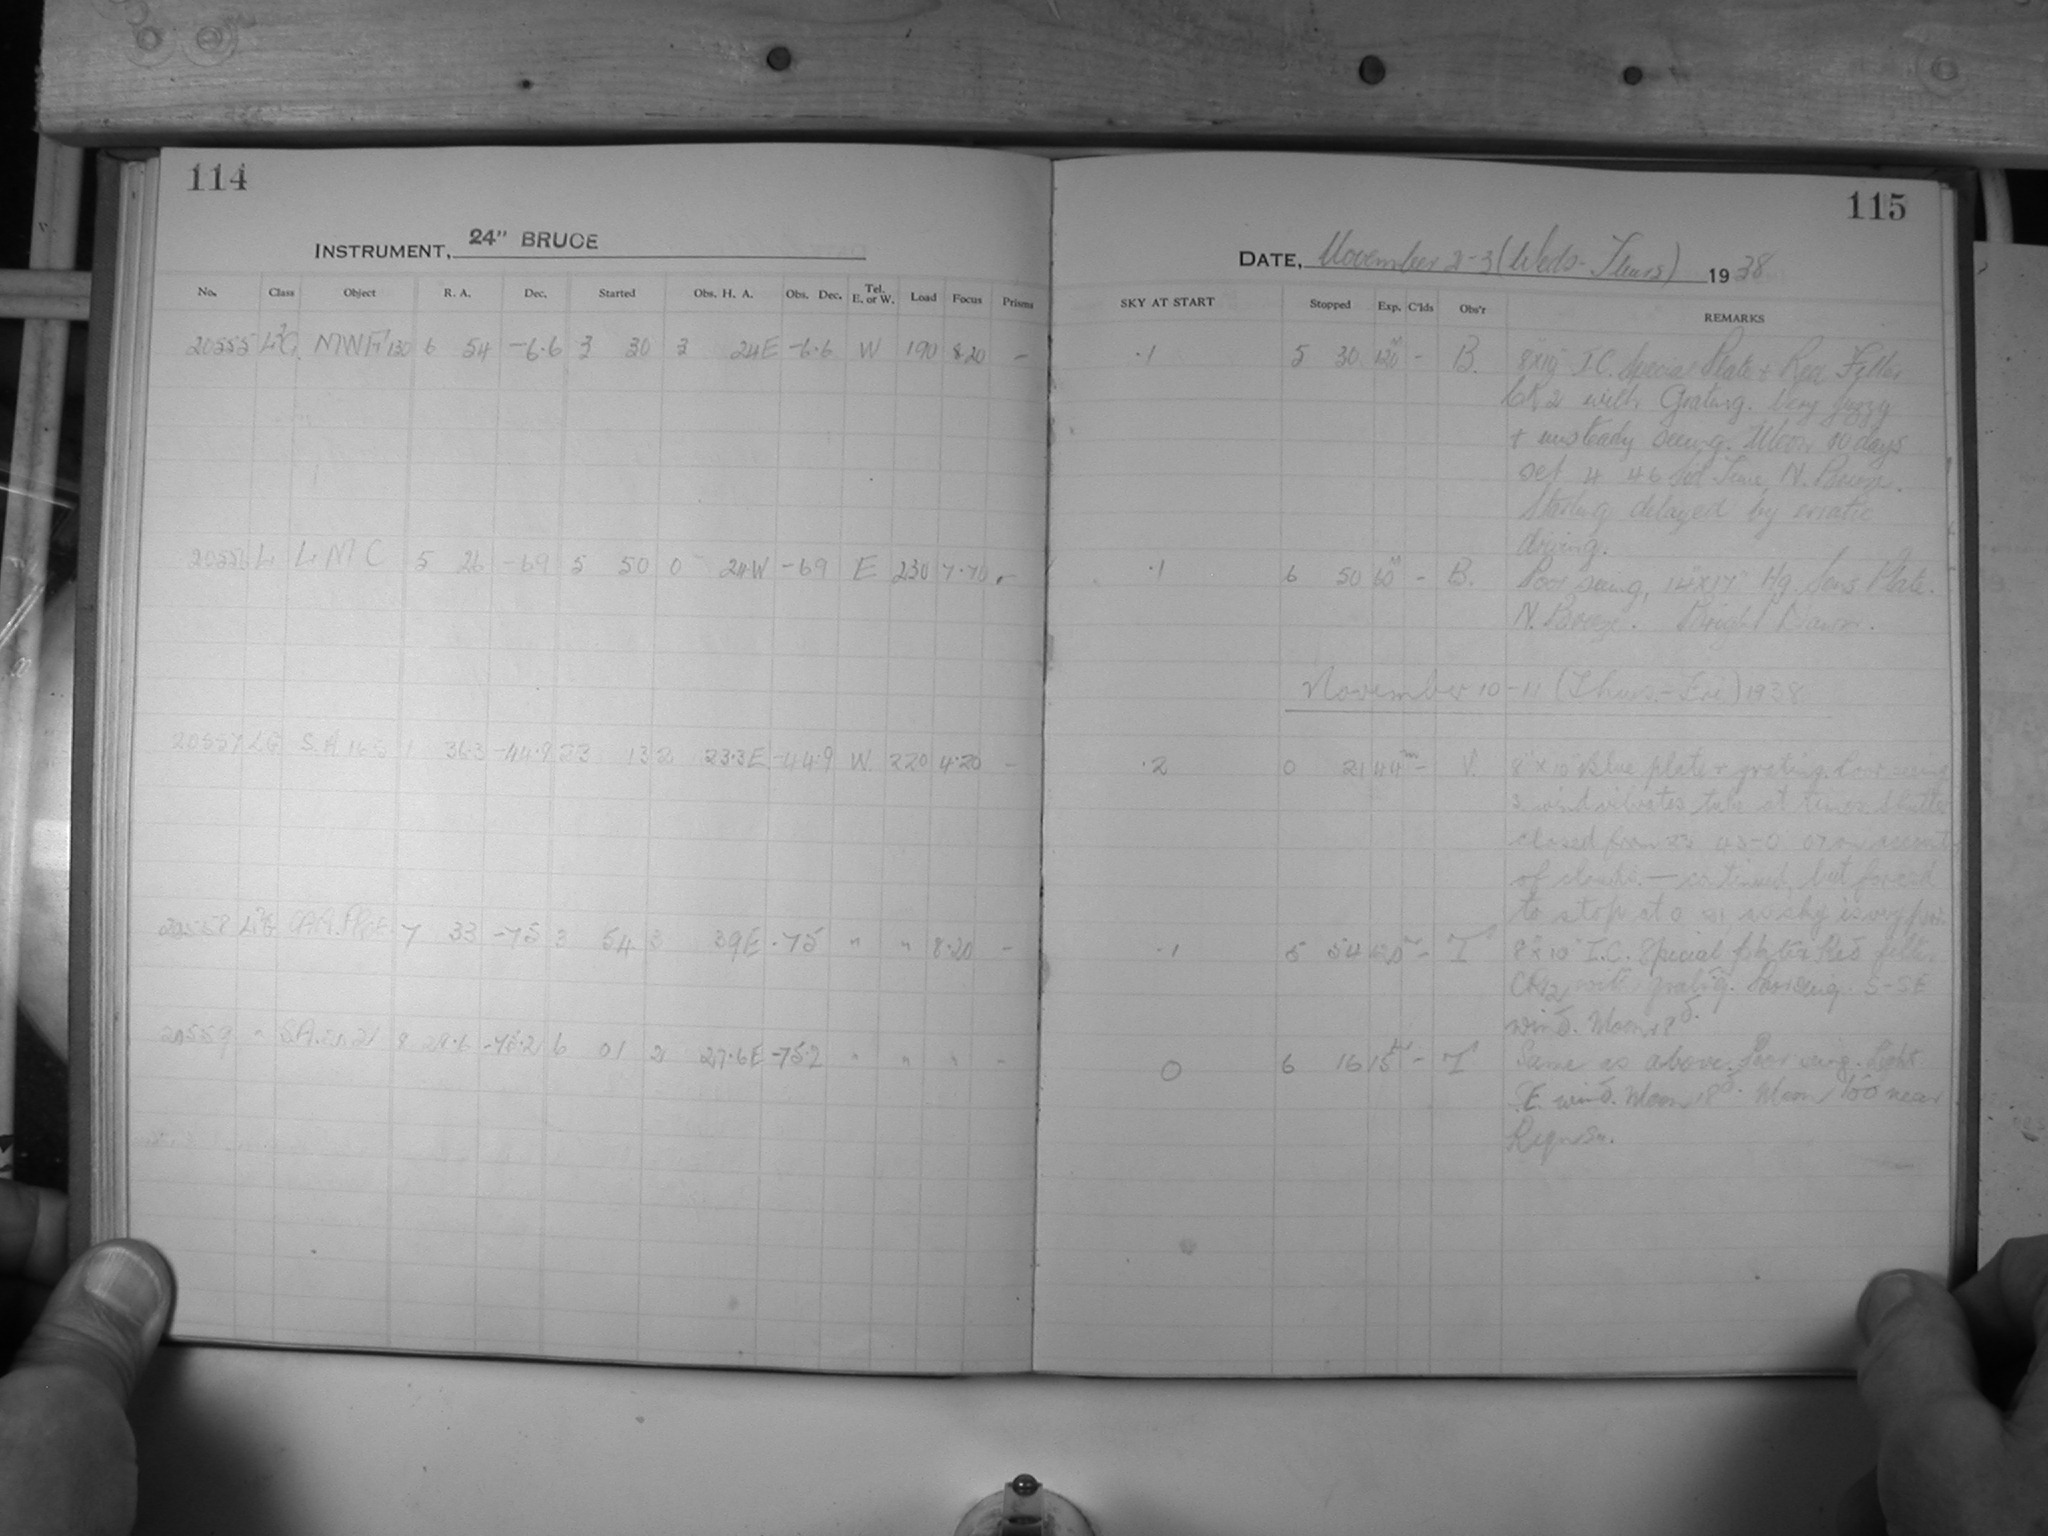 114
115
INSTRUMENT, 24" BRUCE
DATE, November 2-3 (Weds-Thurs) 1938
No. Class Object R. A. Dec. Started Obs. H. A. Obs. Dec. Tel. E. or W. Load Focus Prisms
SKY AT START Stopped Exp. C'lds Obs'r REMARKS
20555 MWF 130 6 54 -6.6 3 30 3 24E -6.6 W 190 8.20 -
.1 5 30 120m - B. 8"x10" I.C. Special Plate + Red Filter
with Grating. Very fuzzy
+ unsteady seeing. Moon 10 days
set 4 46 Sid Time, N. Breeze.
Starting delayed by erratic
driving.
20556 L L M C 5 26 -69 5 50 0 24W -69 E 230 7.70 -
.1 6 50 60m - B. Poor seeing, 14"x17" Hg. Sens Plate.
N. Breeze. Bright Dawn.
November 10-11 (Thurs-Fri) 1938
20557 LG S.A 165 1 36.3 -44.9 23 13 2 23.3E -44.9 W. 220 4.20 -
.2 0 21 44m - V. 8"x10" Blue plate + grating. Poor seeing
S. wind vibrates tube at times Shutter
closed from 23 43-0 07 on account
of clouds. - continued, but forced
to stop at 0 21, as sky is very poor.
20558 7 33 -75 3 54 3 39E -75 " " 8.20 -
.1 5 54 120m - T 8"x10" I.C. Special plate + Red filter
with grating. Poor seeing. S-SE
wind. Moon 18d.
20559 " 8 29.6 -75.2 6 01 2 27.6E -75.2 " " " -
0 6 16 15m - T Same as above. Poor seeing. Light
S.E. wind. Moon 18d. Moon too near
Region.